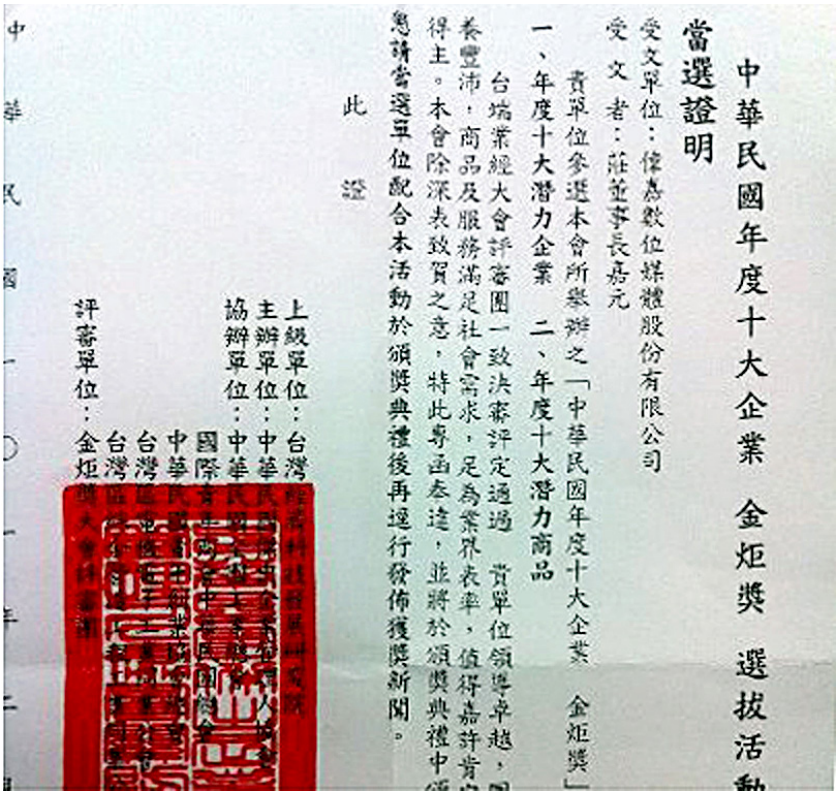 中華民國年度十大企業 金炬獎 選拔活動
當選證明
受文單位：偉嘉數位媒體股份有限公司
受文者：莊董事長嘉元
貴單位參選本會所舉辦之「中華民國年度十大企業 金炬獎」
一、年度十大潛力企業 二、年度十大潛力商品
台端業經大會評審團一致決審評定通過 貴單位領導卓越，
養豐沛，商品及服務滿足社會需求，足為業界表率，值得嘉許肯定
得主。本會除深表致賀之意，特此專函奉達，並將於頒獎典禮中頒
懇請當選單位配合本活動於頒獎典禮後再逕行發佈獲獎新聞。
此證
上級單位：台灣經濟科技發展研究院
主辦單位：中華民國傑出企業管理人協會
協辦單位：中華民國
國際青年商會中華民國總會
中華民國
台灣區電機電子工業同業公會
台灣區
評審單位：金炬獎大會評審團
中華民國一〇一年二月